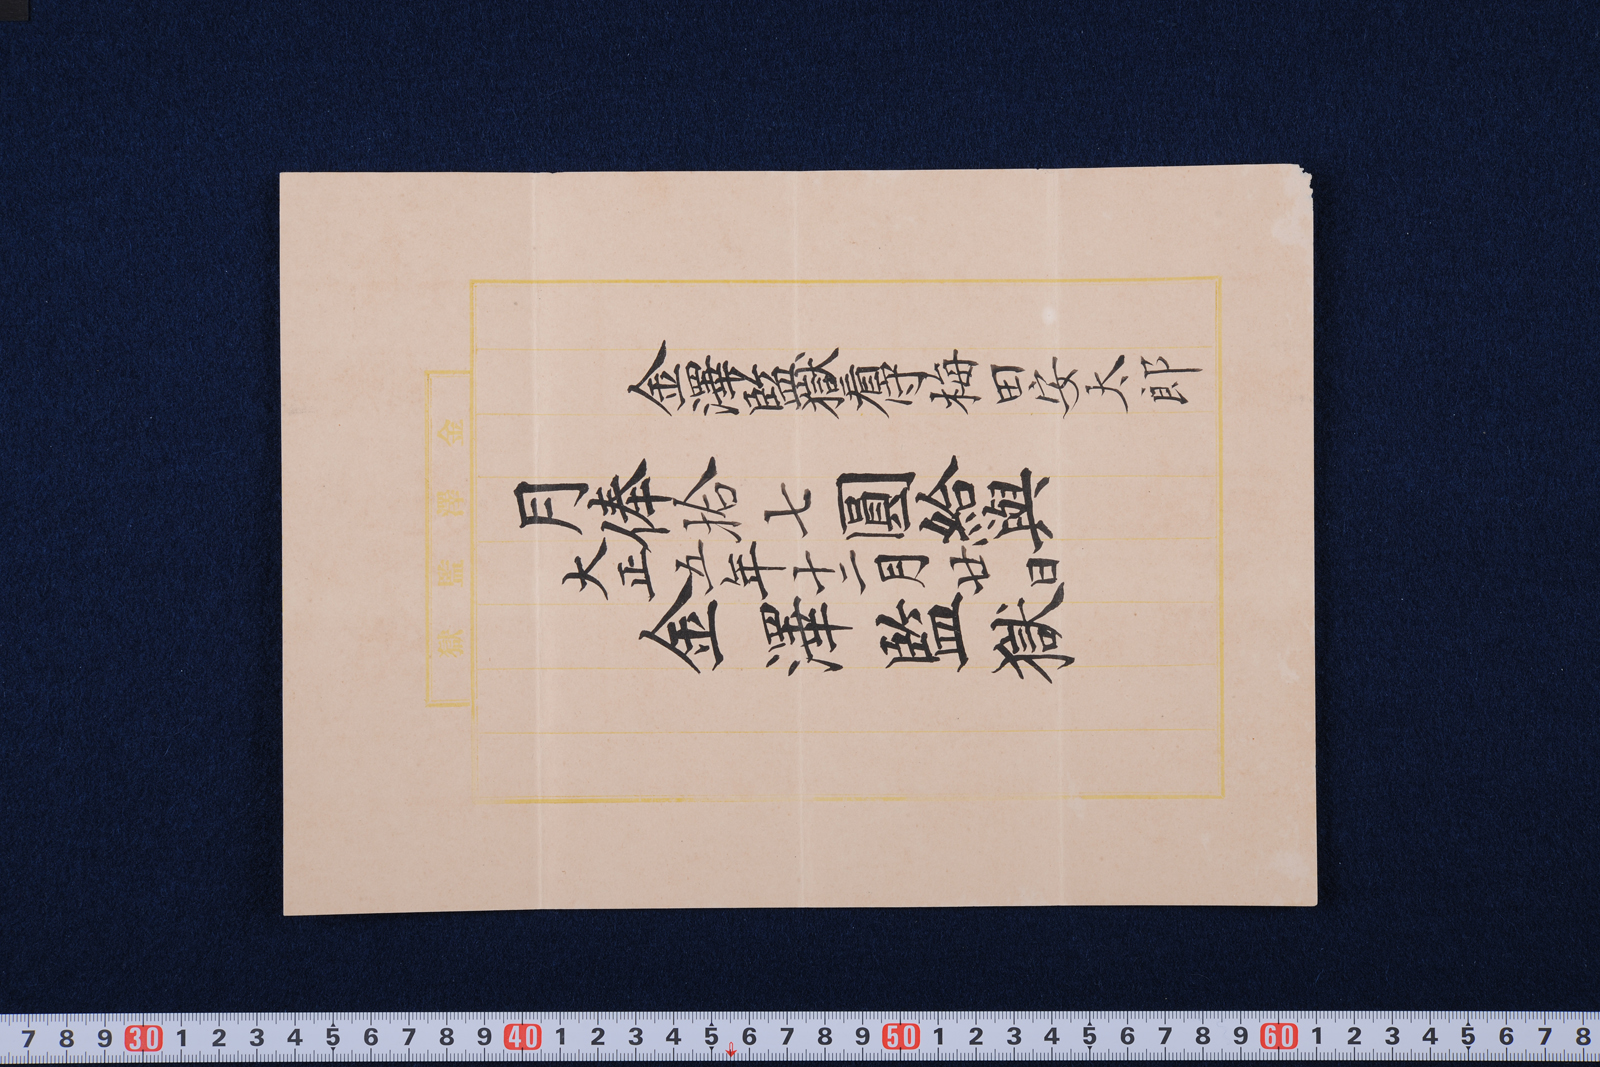 金澤監獄看守梅田安太郎
月俸拾七圓給與
大正五年十二月廿日
金澤監獄
金澤監獄
7 8 9 30 1 2 3 4 5 6 7 8 9 40 1 2 3 4 5 6 7 8 9 50 1 2 3 4 5 6 7 8 9 60 1 2 3 4 5 6 7 8